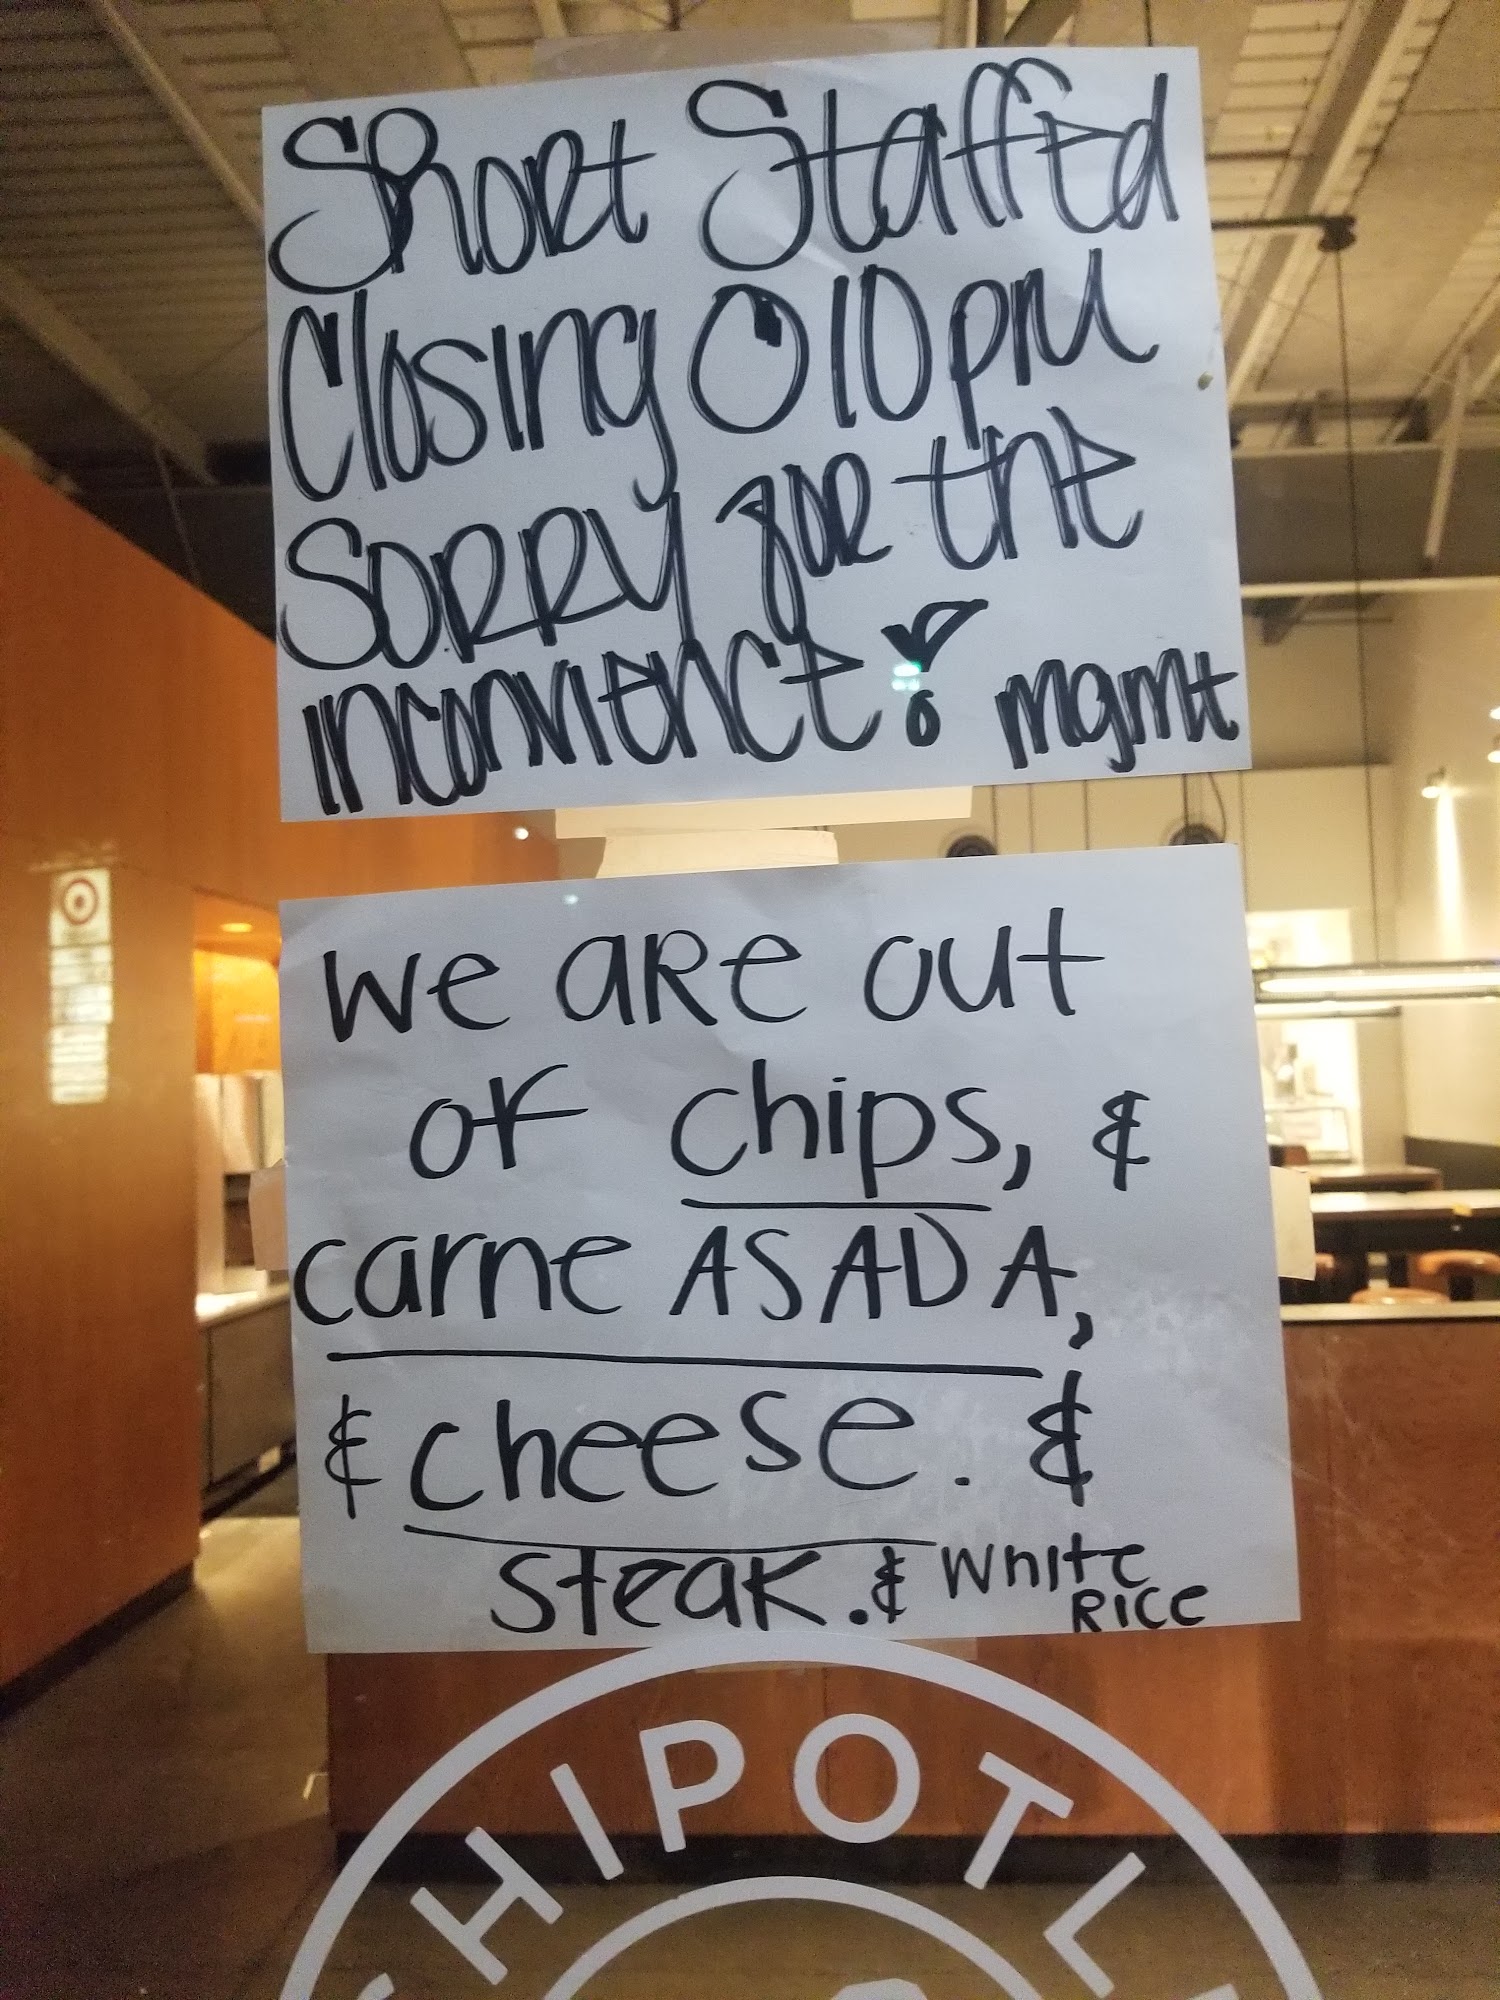 Short Staffed
Closing @ 10pm
Sorry for the
inconvience!
mgmt
We are out
of chips, &
carne ASADA,
& cheese. &
steak. & White
Rice
CHIPOTL